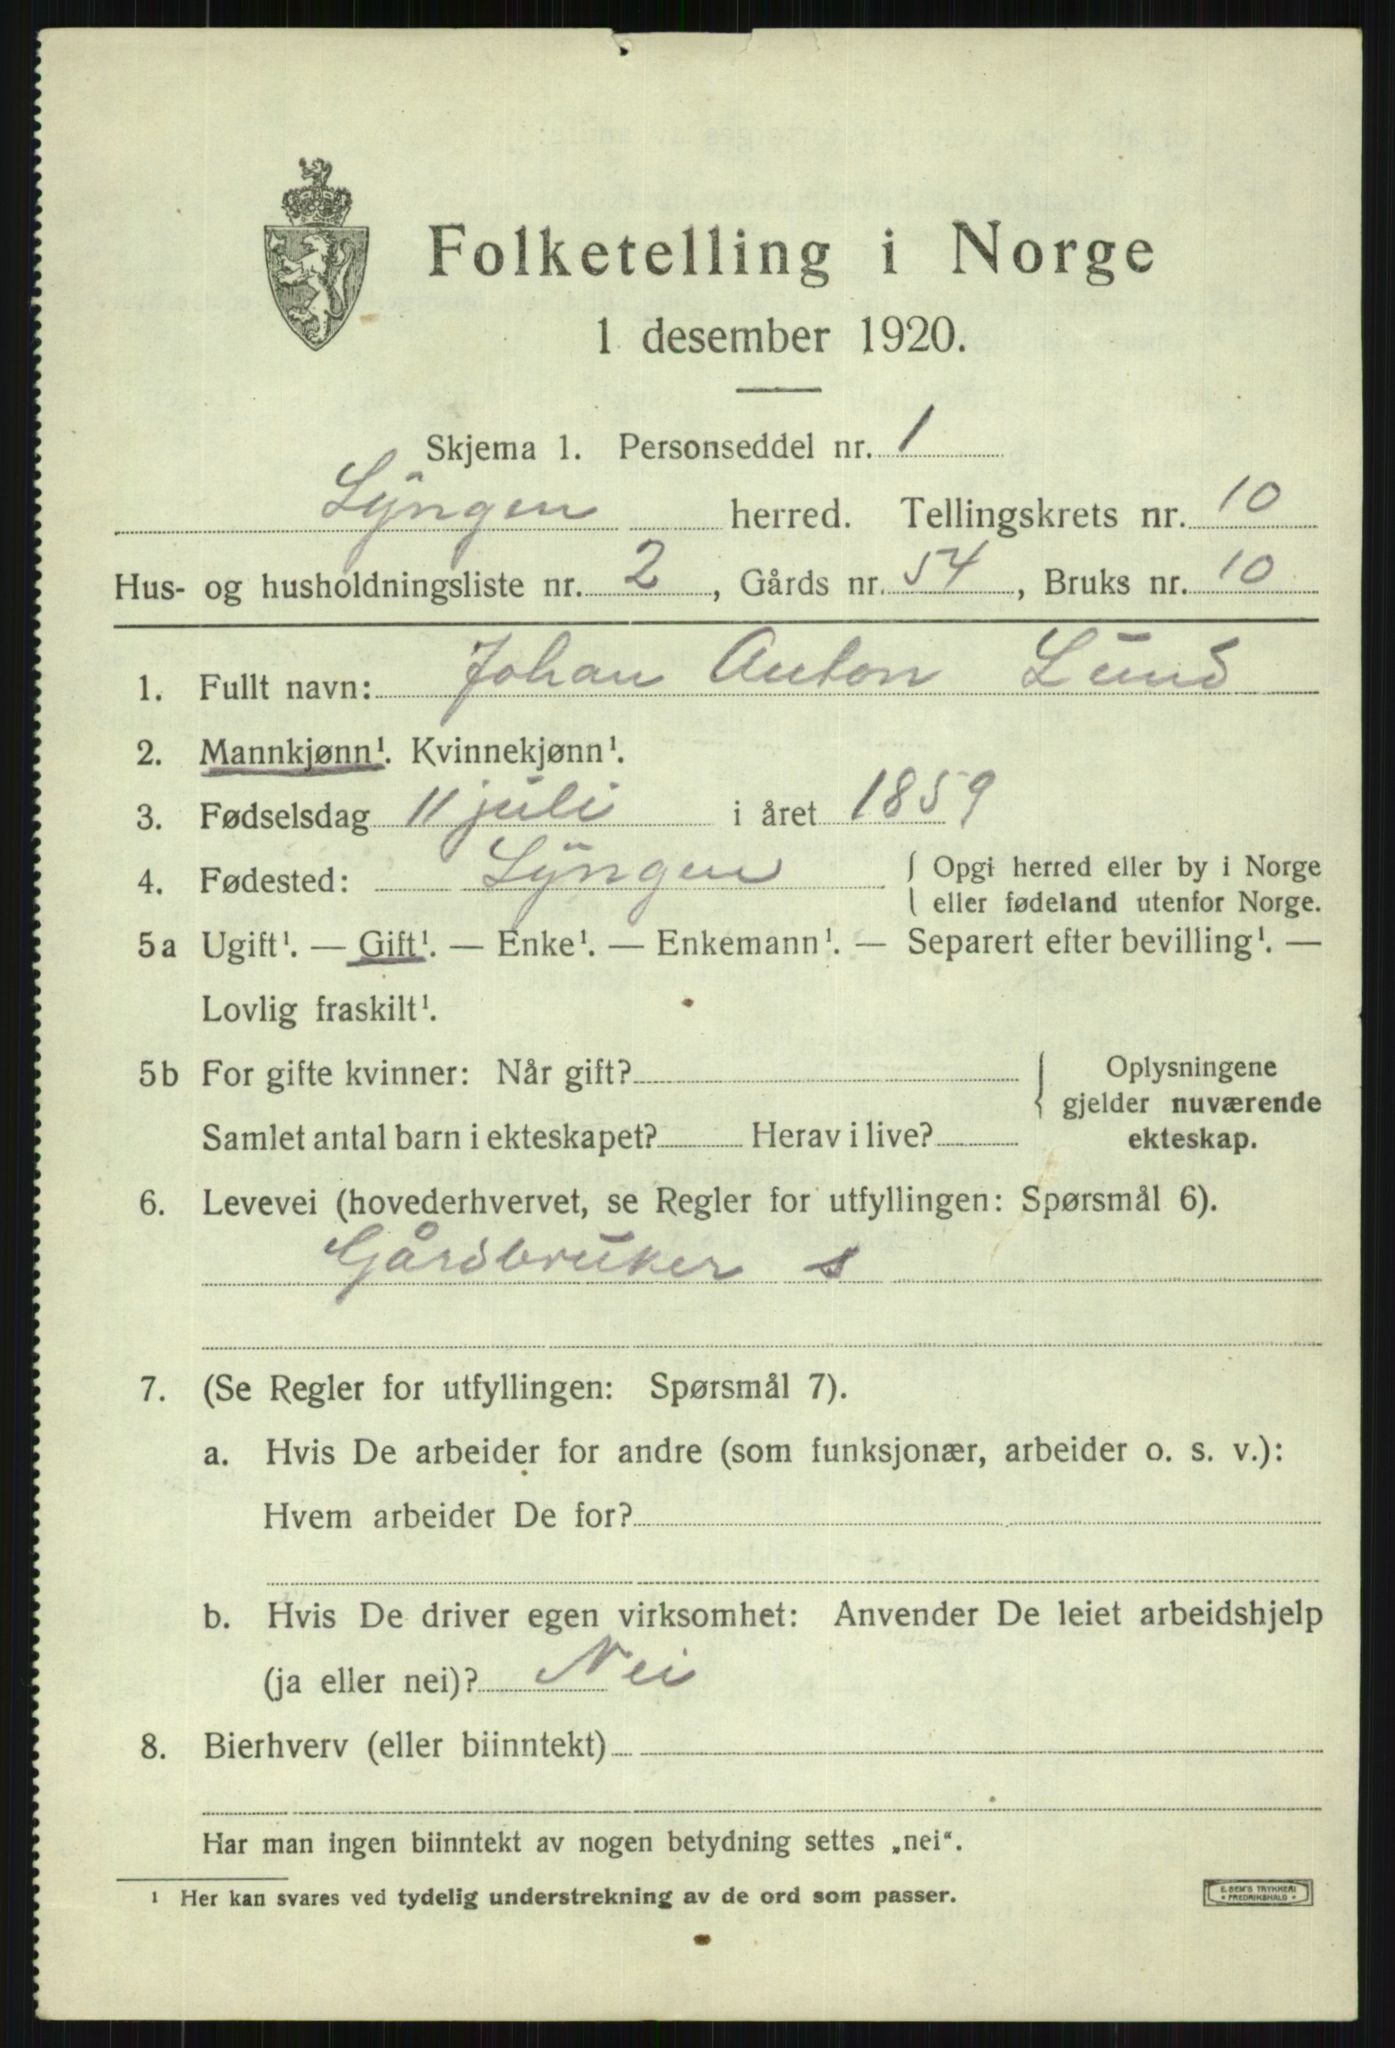 Folketelling i Norge
1 desember 1920.
Skjema 1. Personseddel nr. 1
Lyngen herred. Tellingskrets nr. 10
Hus- og husholdningsliste nr. 2, Gårds nr. 54, Bruks nr. 10
1. Fullt navn: Johan Anton Lund
2. Mannkjønn¹. Kvinnekjønn¹.
3. Fødselsdag 11 juli i året 1859
4. Fødested: Lyngen { Opgi herred eller by i Norge
eller fødeland utenfor Norge.
5a Ugift¹. — Gift¹. — Enke¹. — Enkemann¹. — Separert efter bevilling¹. —
Lovlig fraskilt¹.
5b For gifte kvinner: Når gift?
Samlet antal barn i ekteskapet? Herav i live?
Oplysningene
gjelder nuværende
ekteskap.
6. Levevei (hovederhvervet, se Regler for utfyllingen: Spørsmål 6).
Gårdbruker s
7. (Se Regler for utfyllingen: Spørsmål 7).
a. Hvis De arbeider for andre (som funksjonær, arbeider o. s. v.):
Hvem arbeider De for?
b. Hvis De driver egen virksomhet: Anvender De leiet arbeidshjelp
(ja eller nei)? Nei
8. Bierhverv (eller biinntekt)
Har man ingen biinntekt av nogen betydning settes „nei“.
¹ Her kan svares ved tydelig understrekning av de ord som passer.
E. SEM'S TRYKKERI
• FREDRIKSHALD •